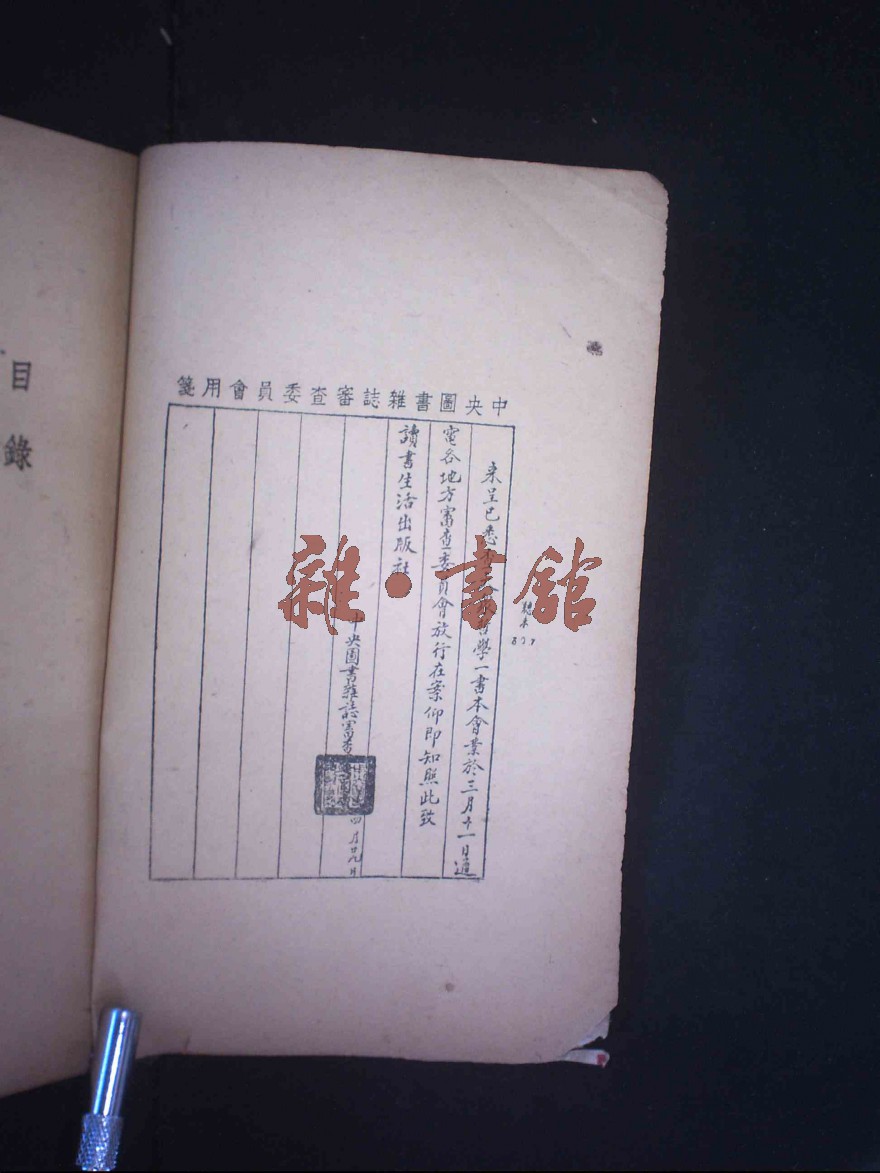 中央圖書雜誌審查委員會用箋
來呈已悉學一書本會業於三月十一日通
電各地方審查委員會放行在案仰即知照此致
讀書生活出版社
中央圖書雜誌審查
四月廿九日
目錄
雜·書館